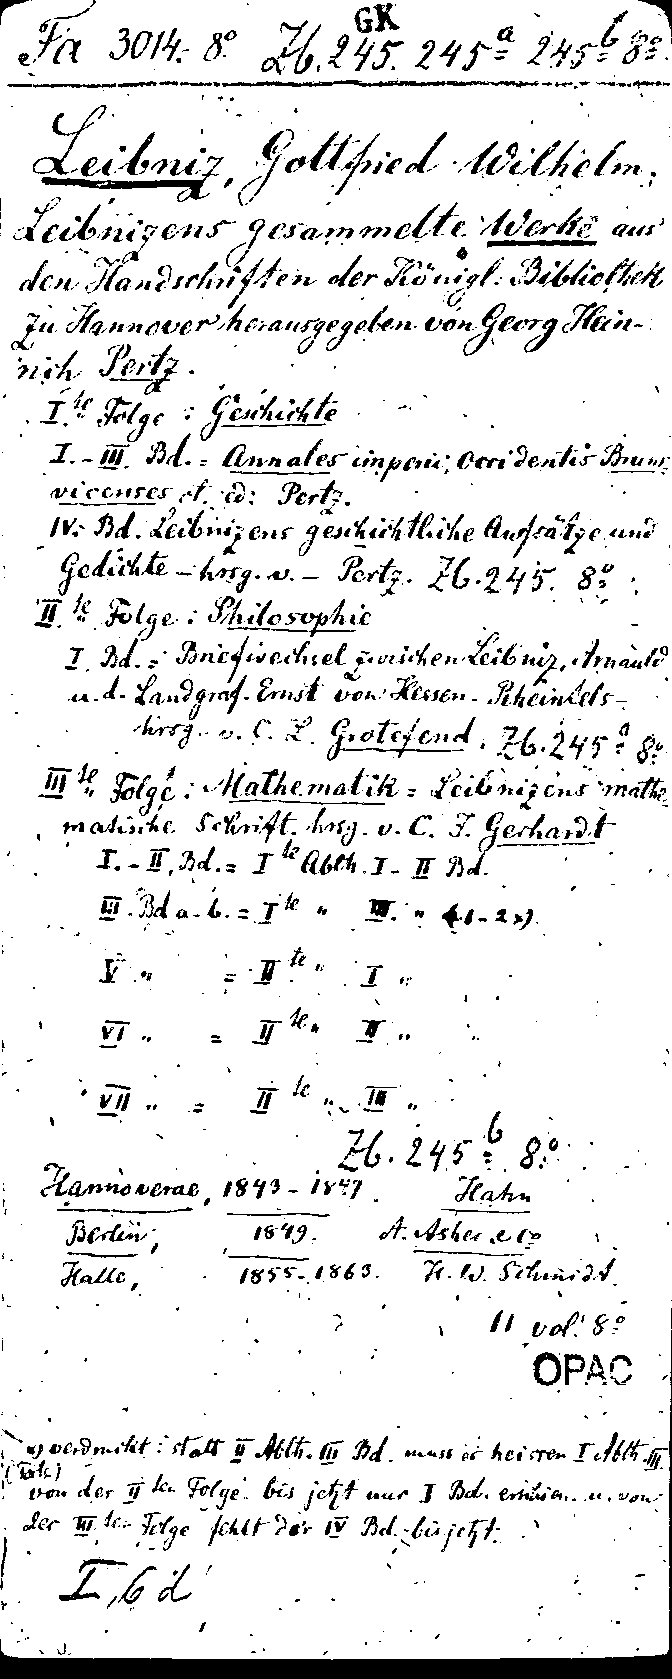 GK
Fa 3014. 8º Zb. 245. 245a 245b 8º.
Leibniz, Gottfried Wilhelm.
Leibnizens gesammelte Werke aus
den Handschriften der Königl. Bibliothek
zu Hannover herausgegeben von Georg Hein-
rich Pertz.
I.te Folge : Geschichte
I. - III. Bd. = Annales imperii occidentis Bruns-
vicenses et. ed: Pertz.
IV. Bd. Leibnizens geschichtliche Aufsätze und
Gedichte - hrsg. v. - Pertz. Zb. 245. 8º
II.te Folge : Philosophie
I. Bd. = Briefwechsel zwischen Leibniz, Arnauld
u. d. Landgraf. Ernst von Hessen-Rheinfels-
hrsg. v. C. L. Grotefend. Zb. 245a 8º
IIIte Folge : Mathematik = Leibnizens mathe-
matische Schrift. hrsg. v. C. J. Gerhardt
I. - II. Bd. = Ite Abth. I - II Bd.
III. Bd a - b. = Ite " III. " (1-2 x)
V " = IIte " I "
VI " = IIte " II "
VII " = IIte " III "
Zb. 245b 8º
Hannoverae, 1843 - 1847. Hahn
Berlin, 1849. A. Asher & Co
Halle, 1855 - 1863. H. W. Schmidt
11 vol. 8º
OPAC
x) verdruckt : statt II Abth. III Bd. muss es heissen I Abth. III
von der IIten Folge bis jetzt nur I Bd. erschien. u. von
der IIIten Folge fehlt der IV Bd. bis jetzt.
I, 6 d